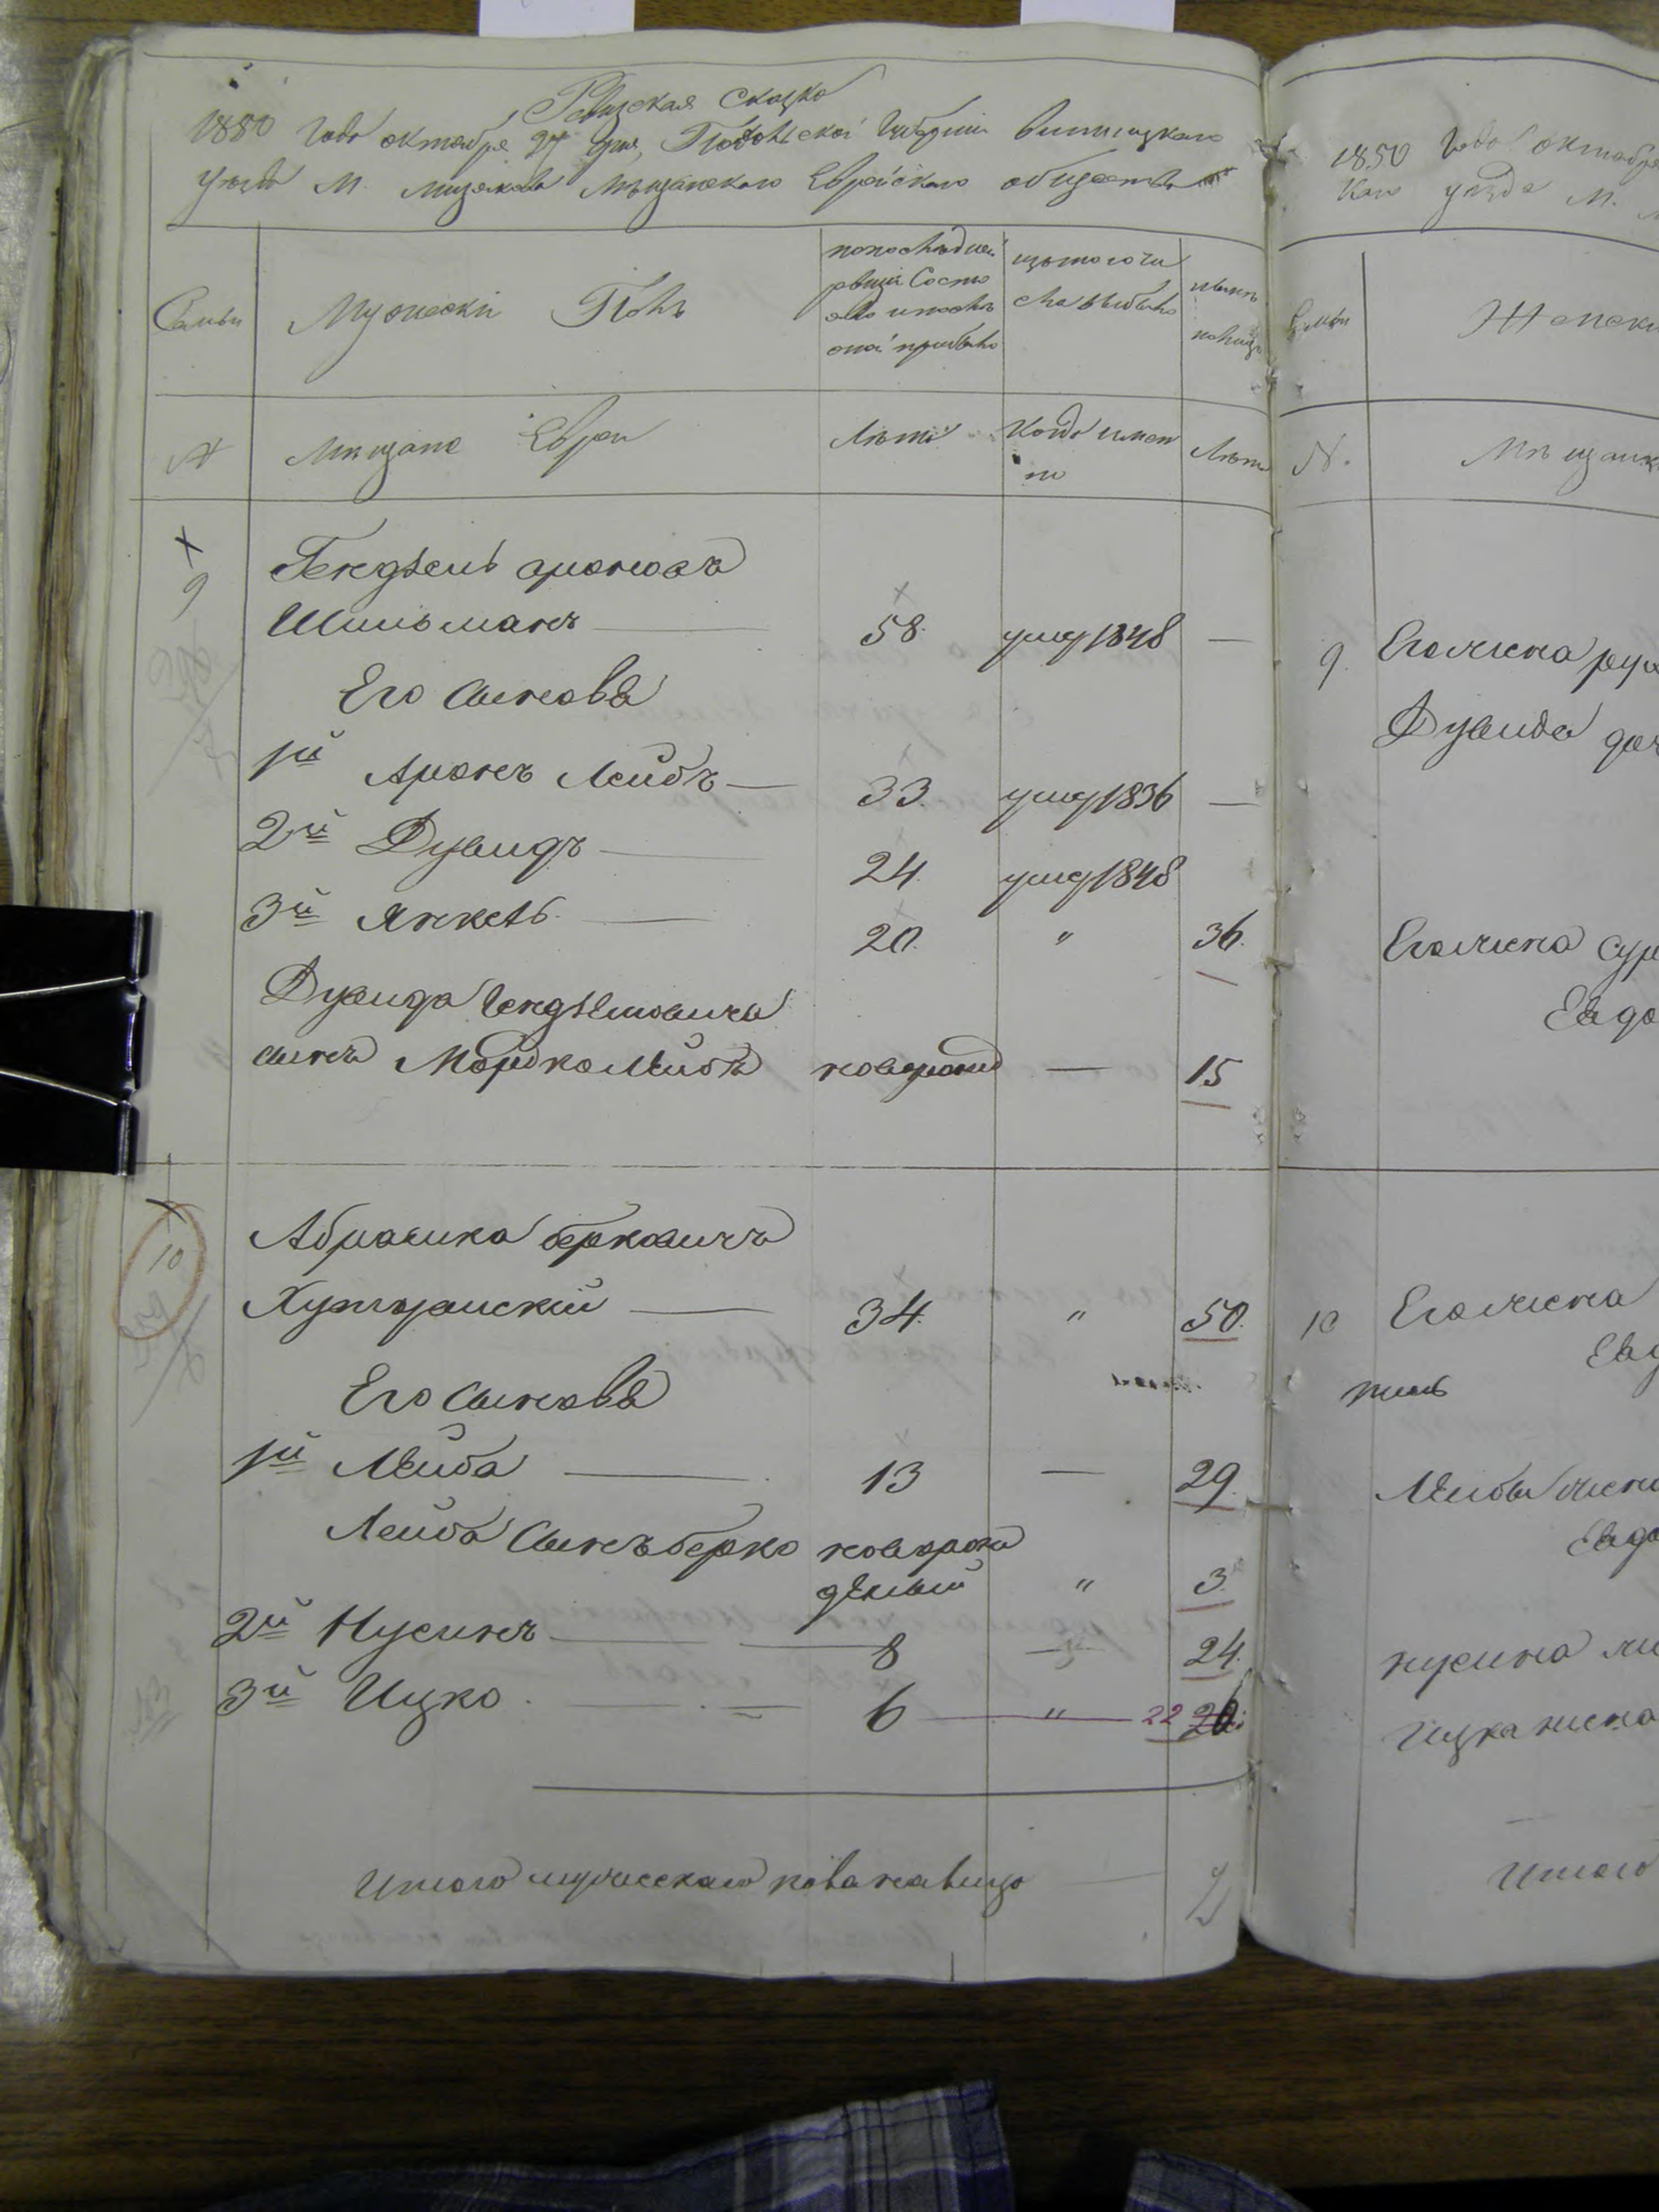 Ревизская Сказка
1850 Года октября 27 дня, Подольской Губернии Винницкаго
уезда М. Мизякова Мѣщанского Еврейскаго общества
Семьи
Мужескій Полъ
по последней ревизіи Состояло и после оной прибыло
изъ того числа выбыло
ныне на лицо
N
Мѣщане Евреи
Лѣта
Когда именно
Лѣта
9
Гендзель ароновъ
Шильманъ — 58. умер 1848 —
Его сыновья
1й Аронъ Лейбъ — 33. умер 1836 —
2й Дувидъ — 24. умер 1848
3й Янкель — 20. " 36.
Дувида Гендзелиовича
сынъ Мордко Лейбъ новорожд — 15
10
Абрамко берковичъ
— 34. " 50.
Его сыновья
1й Лейба — 13 — 29.
Лейба Сынъ берко новорожденый " 3.
2й Нусинъ — 8 — 24.
3й Ицко. — 6 — " — 22 20.
Итого мужескаго пола налицо —
1850 Года октября
Каго уезда М.
Семьи
Женски
N.
Мѣщанк
9. Его жена
Дувида
Его жена Сур
Ея до
10 Его жена
Ея
Лейбы жена
Ея до
нусина
Ицка жена
Итого